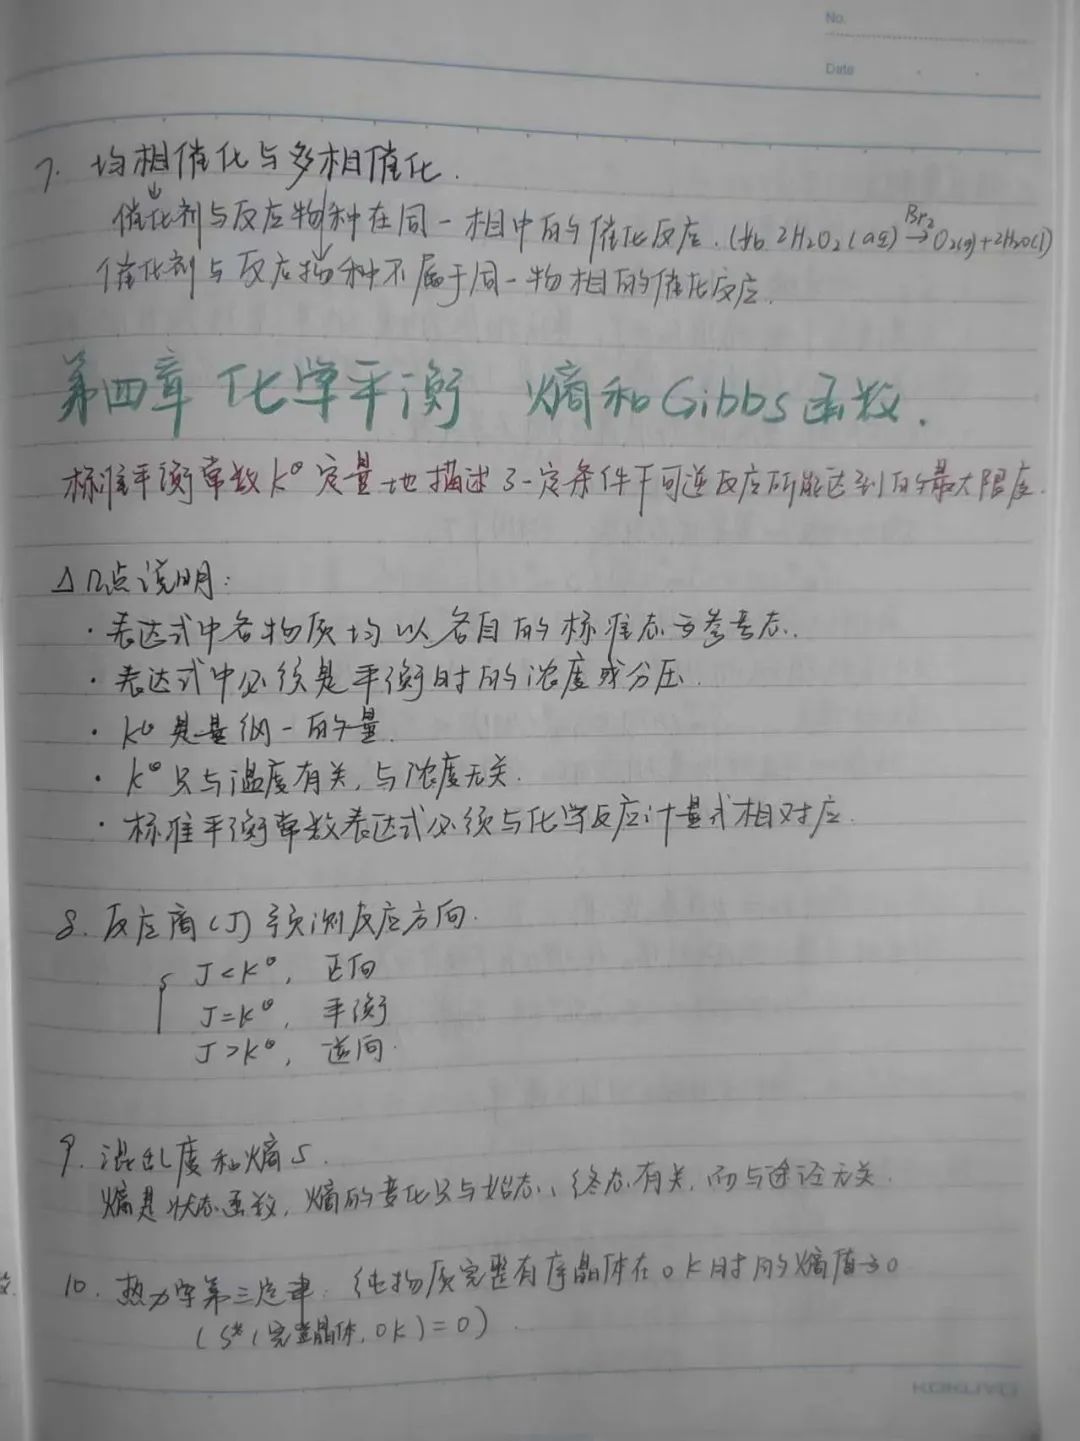 No.
Date
7. 均相催化与多相催化.
催化剂与反应物种在同一相中的催化反应. (如 2H₂O₂(aq) →Br₂ O₂(g)+2H₂O(l))
催化剂与反应物种不属于同一物相的催化反应.
第四章 化学平衡 熵和Gibbs函数.
标准平衡常数K^θ 定量地描述了一定条件下可逆反应所能达到的最大限度.
△ 几点说明:
· 表达式中各物质均以各自的标准态为参考态.
· 表达式中必须是平衡时的浓度或分压.
· K^θ 是量纲一的量.
· K^θ 只与温度有关, 与浓度无关.
· 标准平衡常数表达式必须与化学反应计量式相对应.
8. 反应商(J) 预测反应方向.
J<K^θ, 正向
J=K^θ, 平衡
J>K^θ, 逆向.
9. 混乱度和熵S.
熵是状态函数, 熵的变化只与始态、终态有关, 而与途径无关.
10. 热力学第三定律: 纯物质完整有序晶体在0K时的熵值为0
(S*(完整晶体, 0K)=0)
KOKUYO